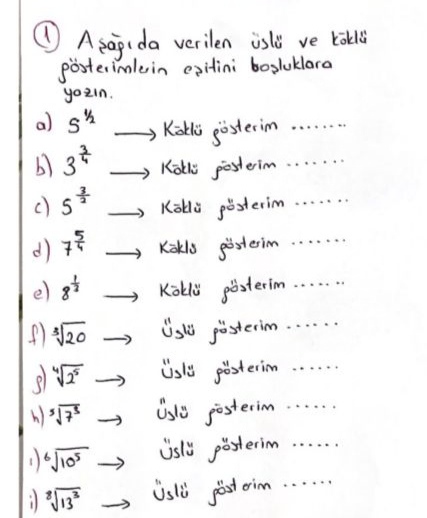 ① Aşağıda verilen üslü ve köklü
gösterimlerin eşitini boşluklara
yazın.
a) 5^½ → Köklü gösterim ........
b) 3^¾ → Köklü gösterim .......
c) 5^(3/2) → Köklü gösterim .......
d) 7^(5/4) → Köklü gösterim .......
e) 8^(1/2) → Köklü gösterim .......
f) ³√20 → Üslü gösterim ......
g) ⁴√2⁵ → Üslü gösterim ......
h) ⁵√7³ → Üslü gösterim ......
ı) ⁶√10⁵ → Üslü gösterim ......
i) ⁸√13³ → Üslü gösterim ......